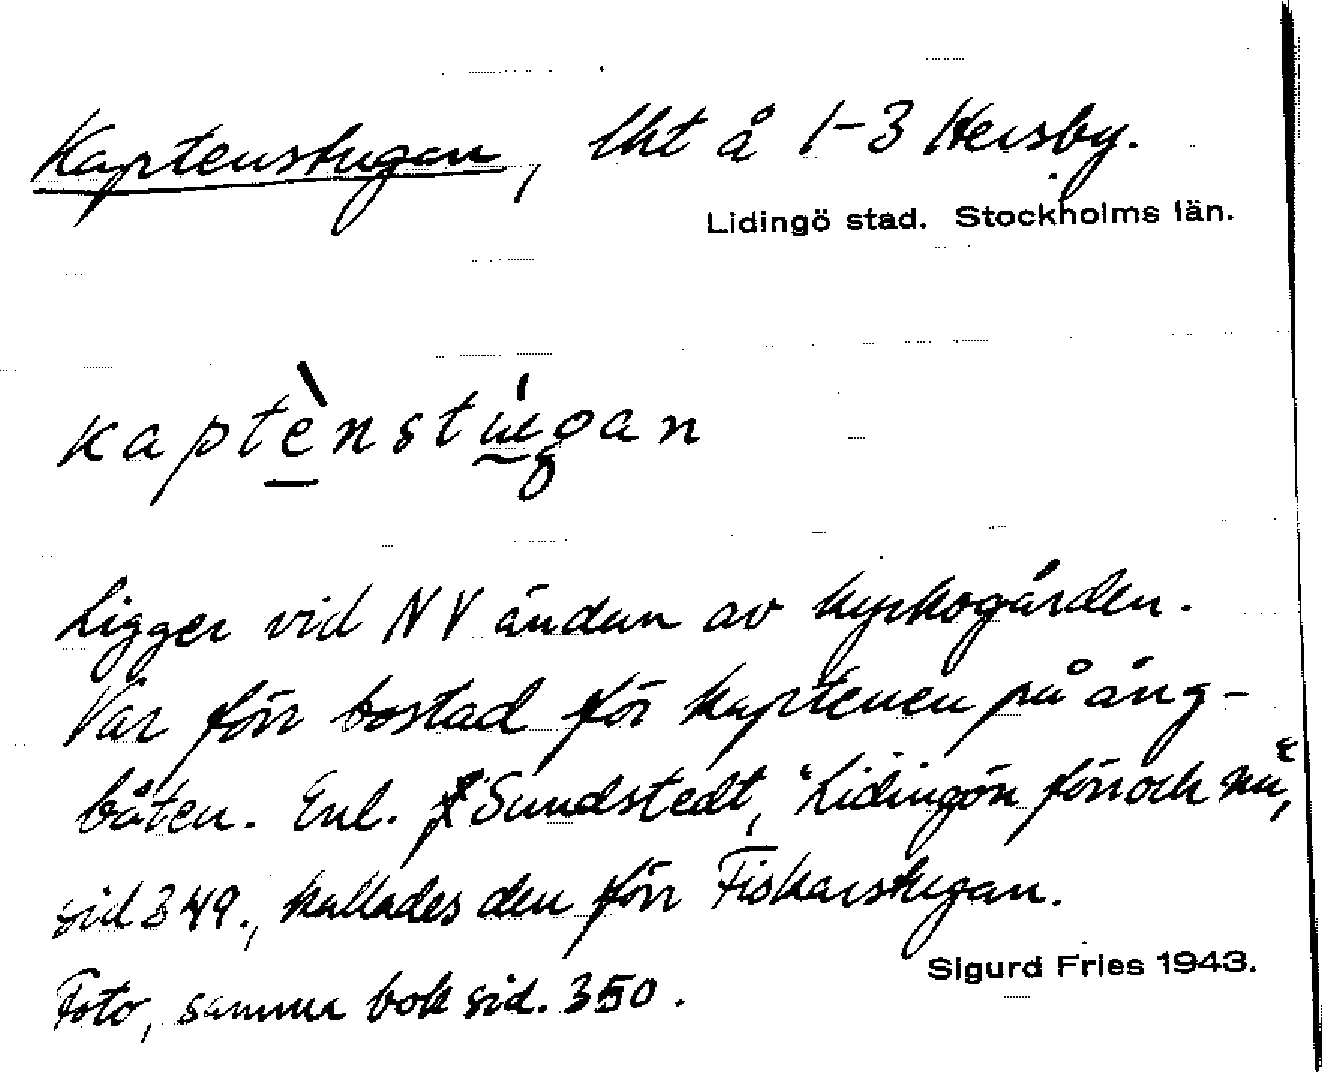 Kaptenstugan, lht å 1-3 Hersby.
Lidingö stad. Stockholms län.
kaptènstúgan
Ligger vid NV ändan av kyrkogården.
Var förr bostad för kaptenen på ång-
båten. Enl. Sundstedt, "Lidingön förr och nu",
sid 349., kallades den förr Fiskarstugan.
Sigurd Fries 1943.
Foto, samma bok sid. 350.